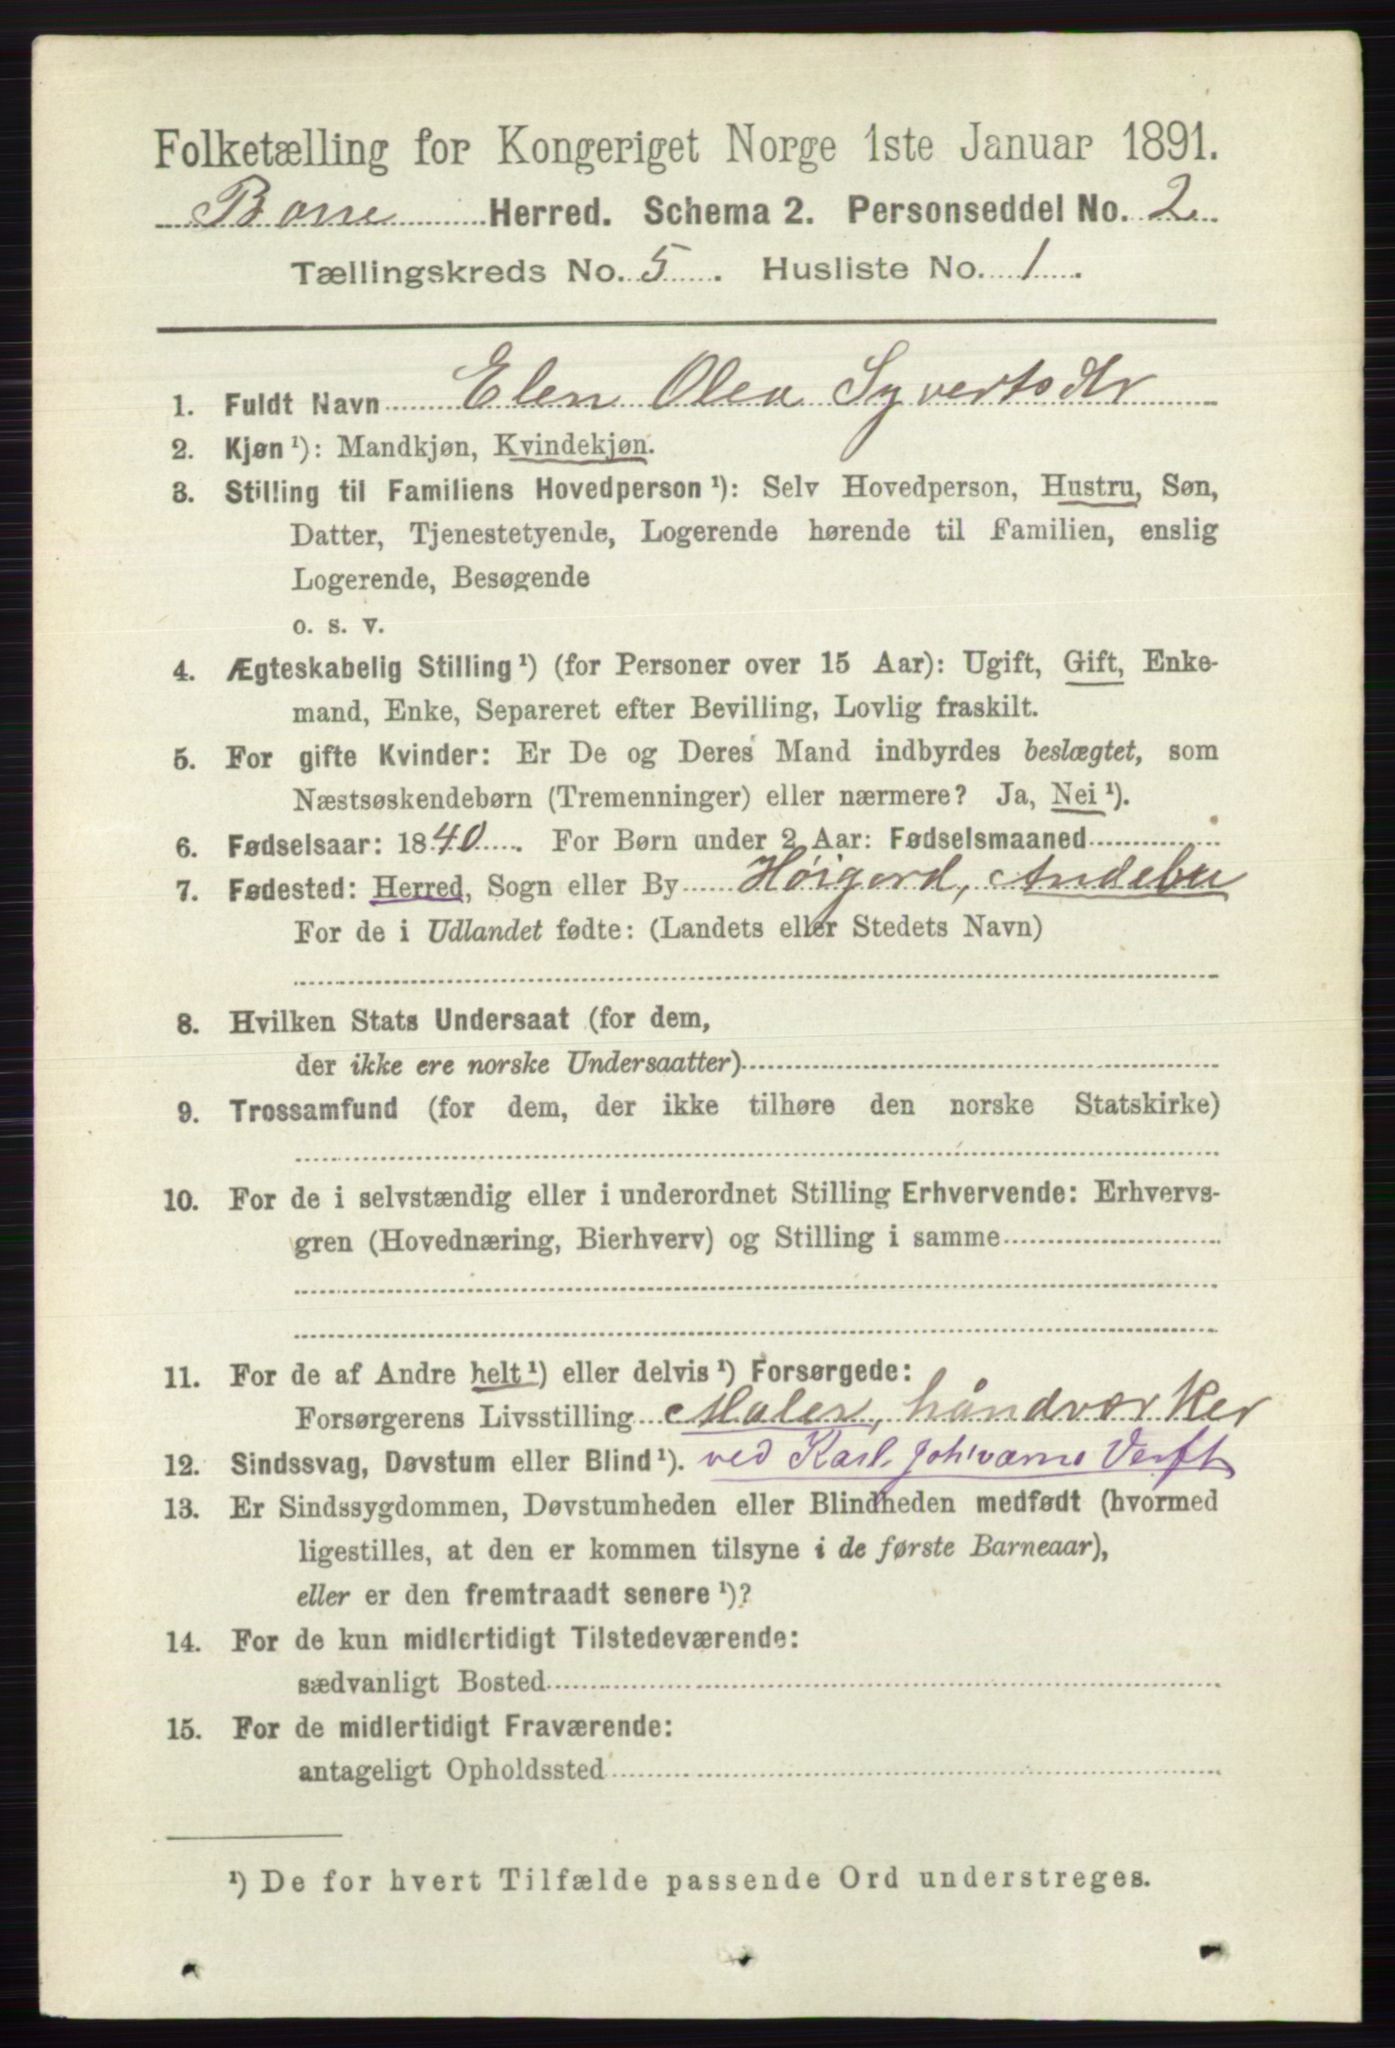 Folketælling for Kongeriget Norge 1ste Januar 1891.
Borre Herred. Schema 2. Personseddel No. 2
Tællingskreds No. 5. Husliste No. 1.
1. Fuldt Navn Elen Olea Syvertsdtr
2. Kjøn ¹): Mandkjøn, Kvindekjøn.
3. Stilling til Familiens Hovedperson ¹): Selv Hovedperson, Hustru, Søn,
Datter, Tjenestetyende, Logerende hørende til Familien, enslig
Logerende, Besøgende
o. s. v.
4. Ægteskabelig Stilling ¹) (for Personer over 15 Aar): Ugift, Gift, Enke-
mand, Enke, Separeret efter Bevilling, Lovlig fraskilt.
5. For gifte Kvinder: Er De og Deres Mand indbyrdes beslægtet, som
Næstsøskendebørn (Tremenninger) eller nærmere? Ja, Nei ¹).
6. Fødselsaar: 1840. For Børn under 2 Aar: Fødselsmaaned
7. Fødested: Herred, Sogn eller By Høigord, Andebu
For de i Udlandet fødte: (Landets eller Stedets Navn)
8. Hvilken Stats Undersaat (for dem,
der ikke ere norske Undersaatter)
9. Trossamfund (for dem, der ikke tilhøre den norske Statskirke)
10. For de i selvstændig eller i underordnet Stilling Erhvervende: Erhvervs-
gren (Hovednæring, Bierhverv) og Stilling i samme
11. For de af Andre helt ¹) eller delvis ¹) Forsørgede:
Forsørgerens Livsstilling Maler, håndværker
12. Sindssvag, Døvstum eller Blind ¹). ved Karl Joh'værns Verft
13. Er Sindssygdommen, Døvstumheden eller Blindheden medfødt (hvormed
ligestilles, at den er kommen tilsyne i de første Barneaar),
eller er den fremtraadt senere ¹)?
14. For de kun midlertidigt Tilstedeværende:
sædvanligt Bosted
15. For de midlertidigt Fraværende:
antageligt Opholdssted
¹) De for hvert Tilfælde passende Ord understreges.